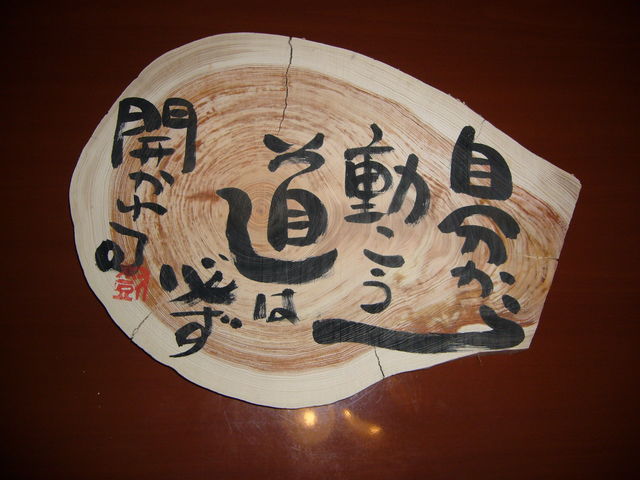 自分から
動こう
道は
必ず
開かれる